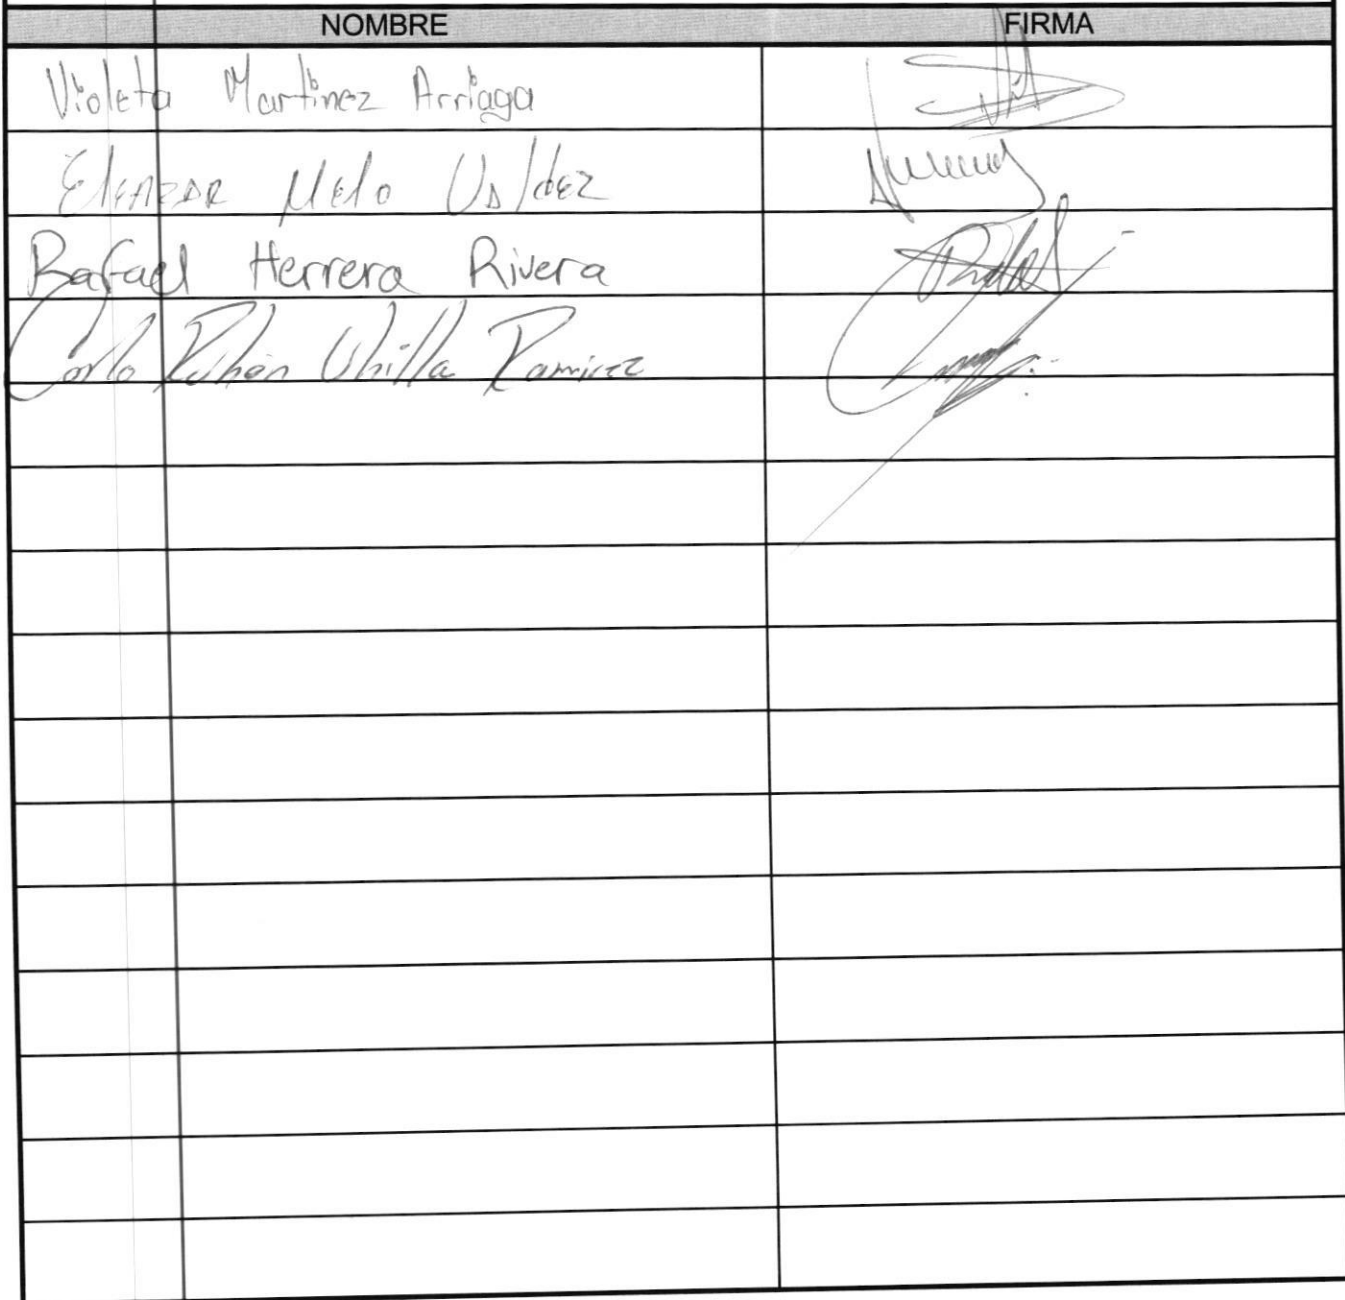 NOMBRE FIRMA
Violeta Martinez Arriaga
Eleazar Melo Valdez
Rafael Herrera Rivera
Ramirez